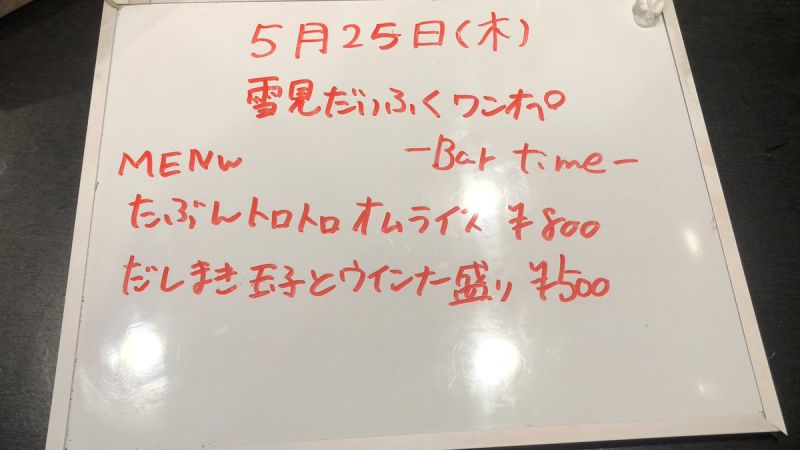 5月25日(木)
雪見だいふくワンオペ
MENU
-Bar time-
たぶんトロトロオムライス ¥800
だしまき玉子とウインナー盛り ¥500